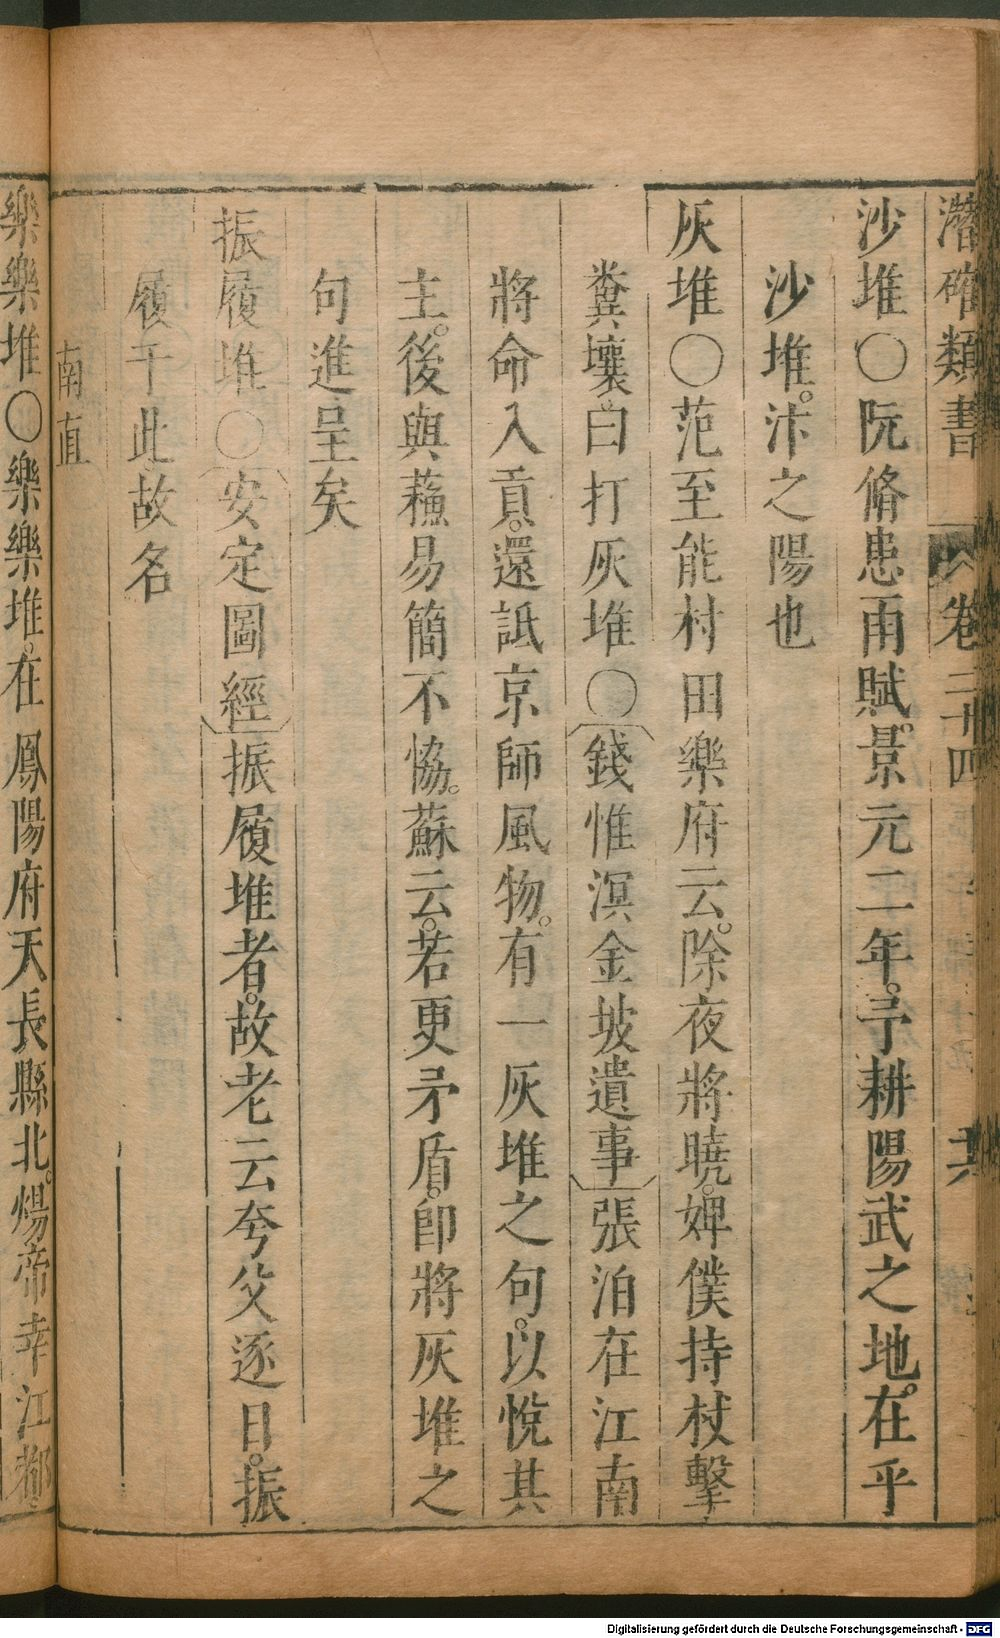 潛確類書 卷三十四 共
沙堆〇阮脩患雨賦。景元二年。予耕陽武之地。在乎
沙堆。汴之陽也
灰堆〇范至能村田樂府云。除夜將曉。婢僕持杖擊
糞壤。曰打灰堆〇錢惟溟金坡遺事張洎在江南
將命入貢。還詆京師風物。有一灰堆之句。以悅其
主。後與蘓易簡不恊。蘇云。若更矛盾。卽將灰堆之
句進呈矣
振履堆〇安定圖經振履堆者。故老云夸父逐日。振
履于此。故名
南直
樂樂堆〇樂樂堆。在鳳陽府天長縣北。煬帝幸江都
Digitalisierung gefördert durch die Deutsche Forschungsgemeinschaft - DFG